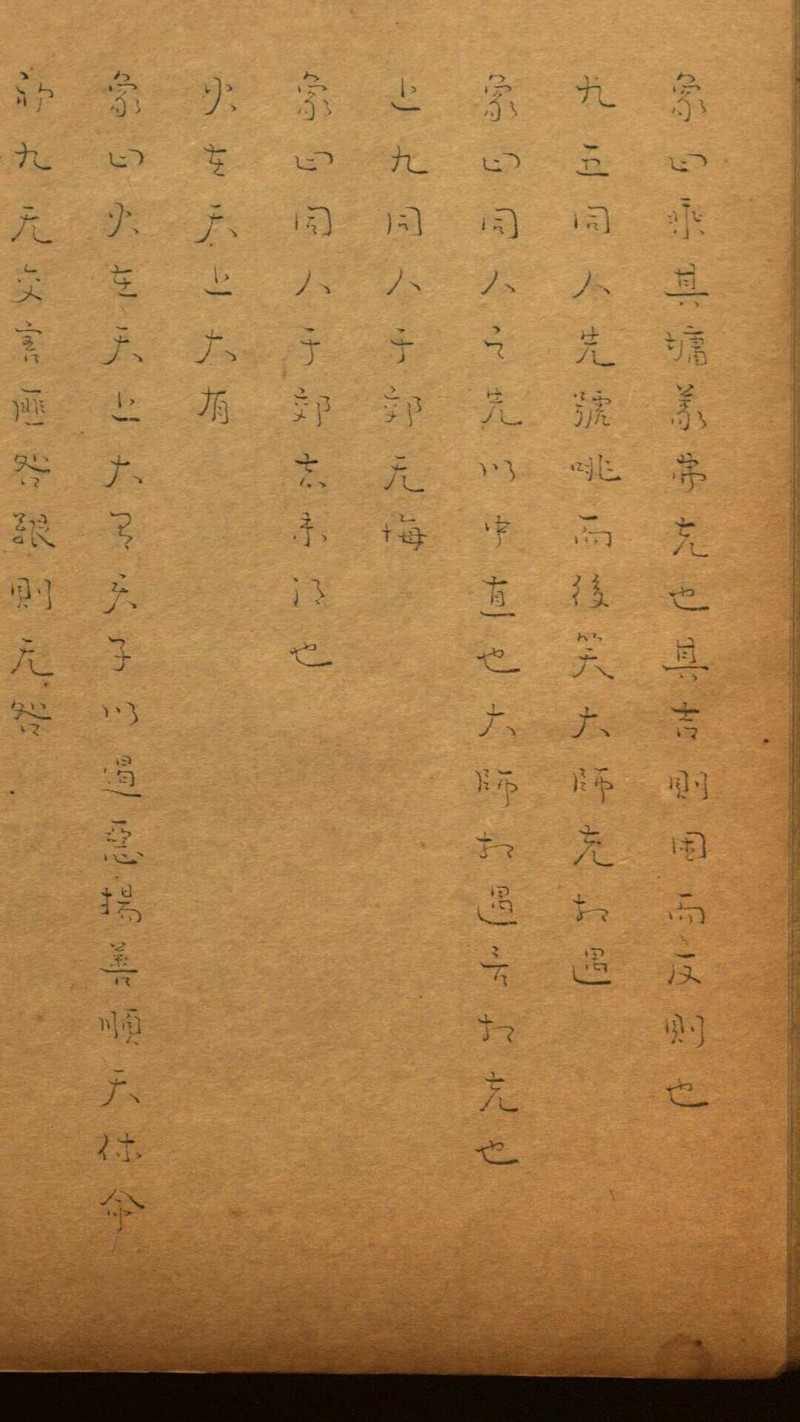 象曰乘其墉義弗克也其吉則困而反則也
九五同人先號咷而後笑大師克相遇
象曰同人之先以中直也大師相遇言相克也
上九同人于郊无悔
象曰同人于郊志未得也
火在天上大有
象曰火在天上大有君子以遏惡揚善順天休命
初九无交害匪咎艱則无咎